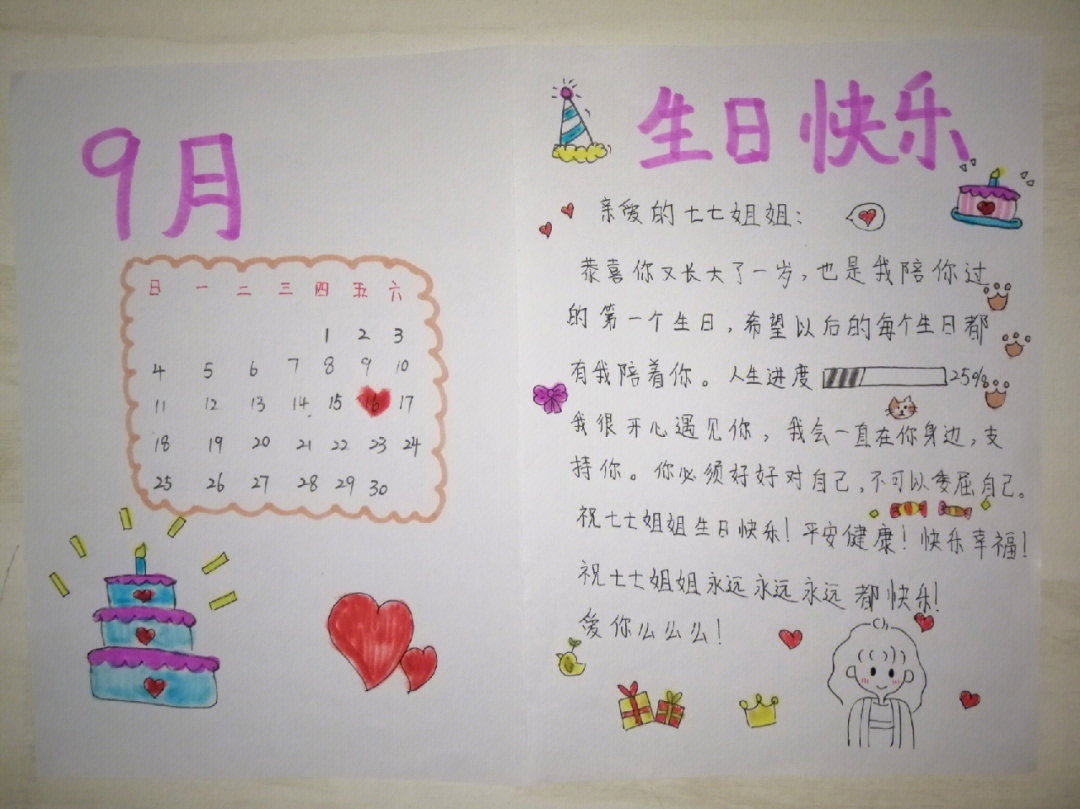 9月
日 一 二 三 四 五 六
1 2 3
4 5 6 7 8 9 10
11 12 13 14 15 16 17
18 19 20 21 22 23 24
25 26 27 28 29 30
生日快乐
亲爱的七七姐姐：
恭喜你又长大了一岁，也是我陪你过
的第一个生日，希望以后的每个生日都
有我陪着你。人生进度 25%
我很开心遇见你，我会一直在你身边，支
持你。你必须好好对自己，不可以委屈自己。
祝七七姐姐生日快乐！平安健康！快乐幸福！
祝七七姐姐永远永远永远都快乐！
爱你么么么！